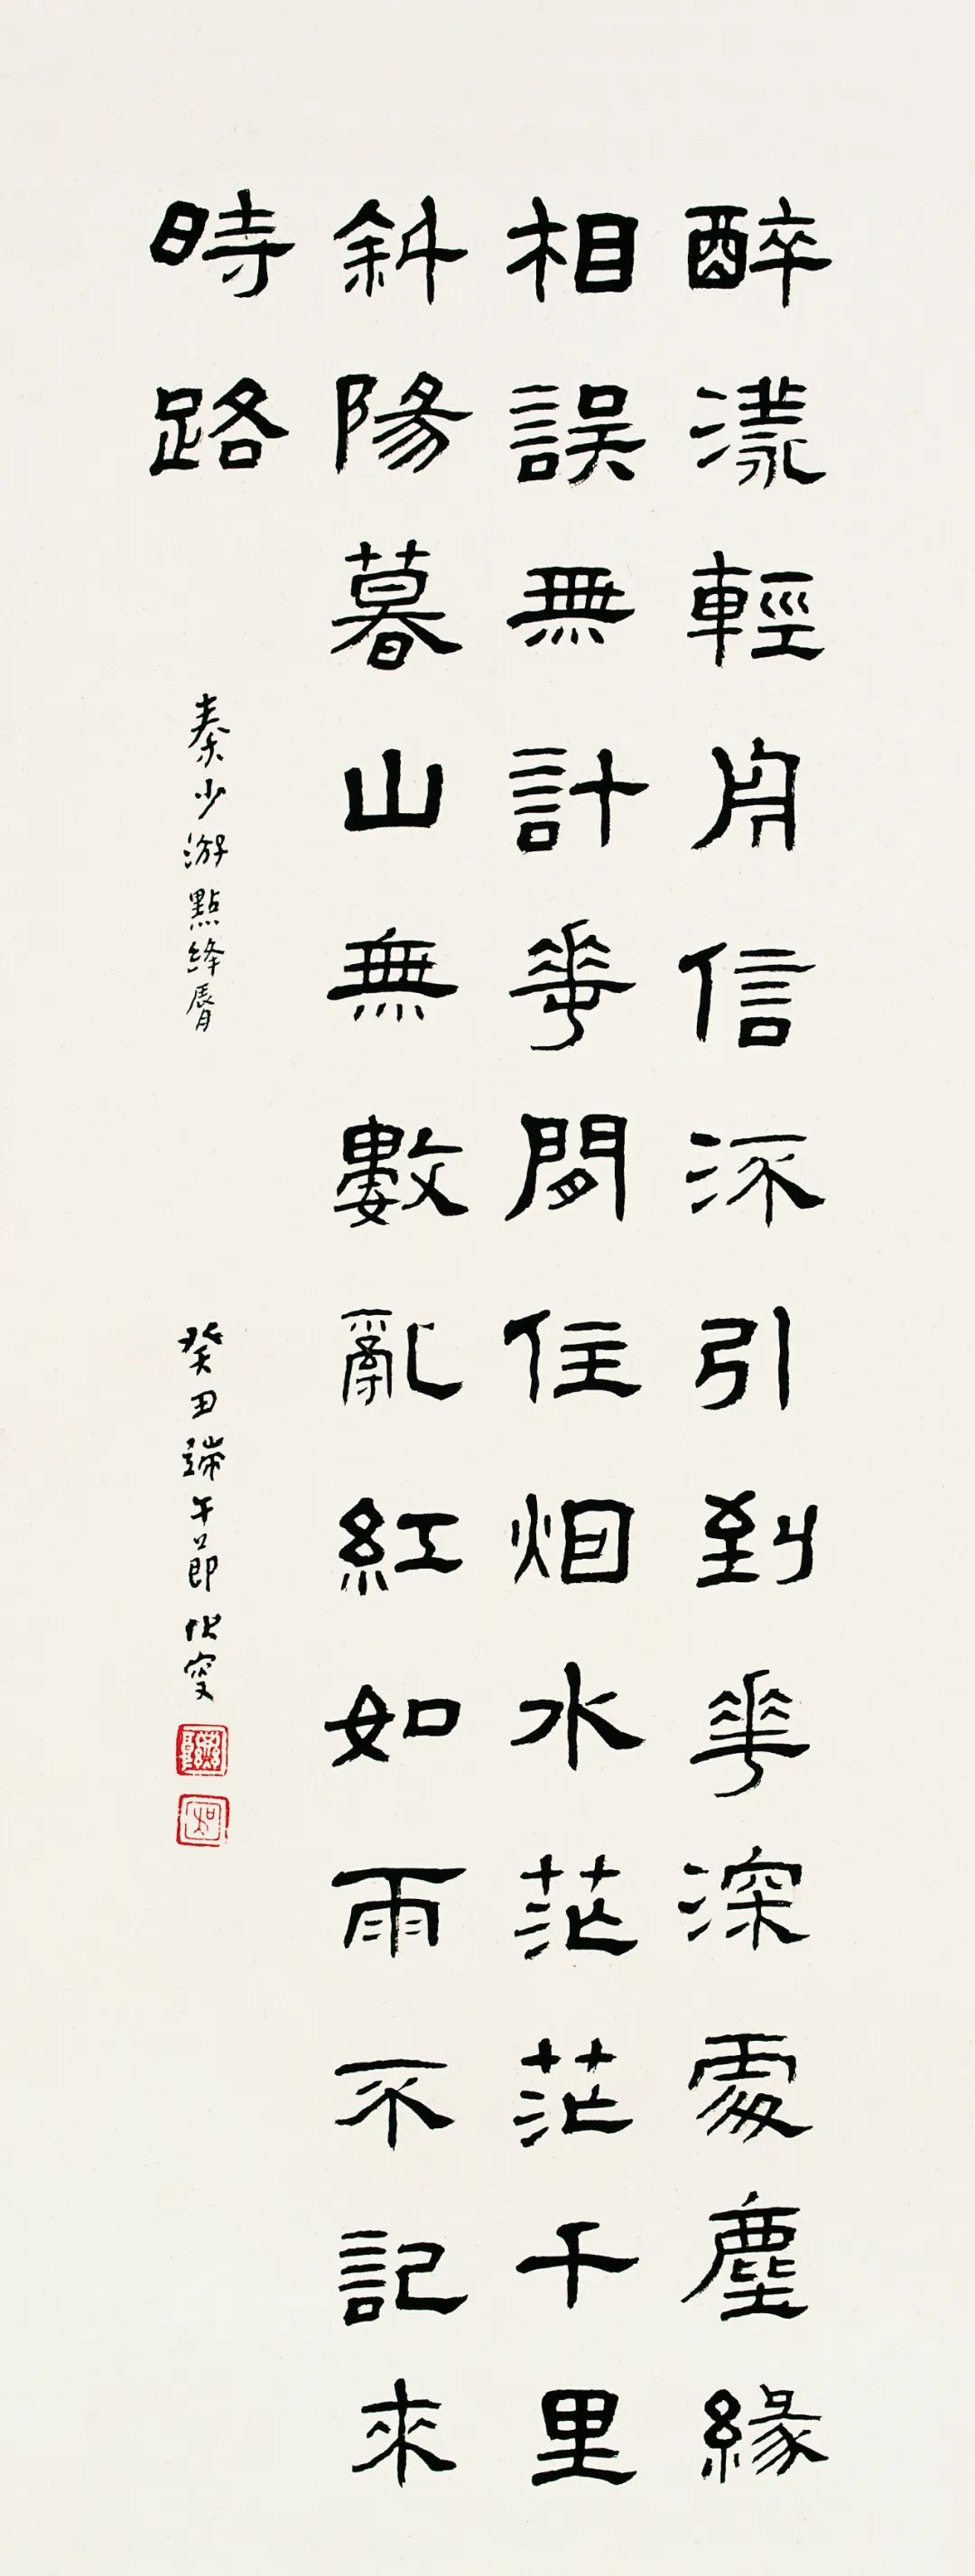 醉漾輕舟信流引到花深處塵緣
相誤無計花間住烟水茫茫千里
斜陽暮山無數亂紅如雨不記來
時路
秦少游點絳脣
癸丑端午節 伏叟